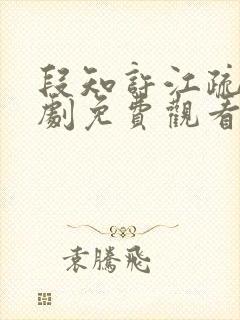 段知許江疏
劇免費觀看
袁騰飛